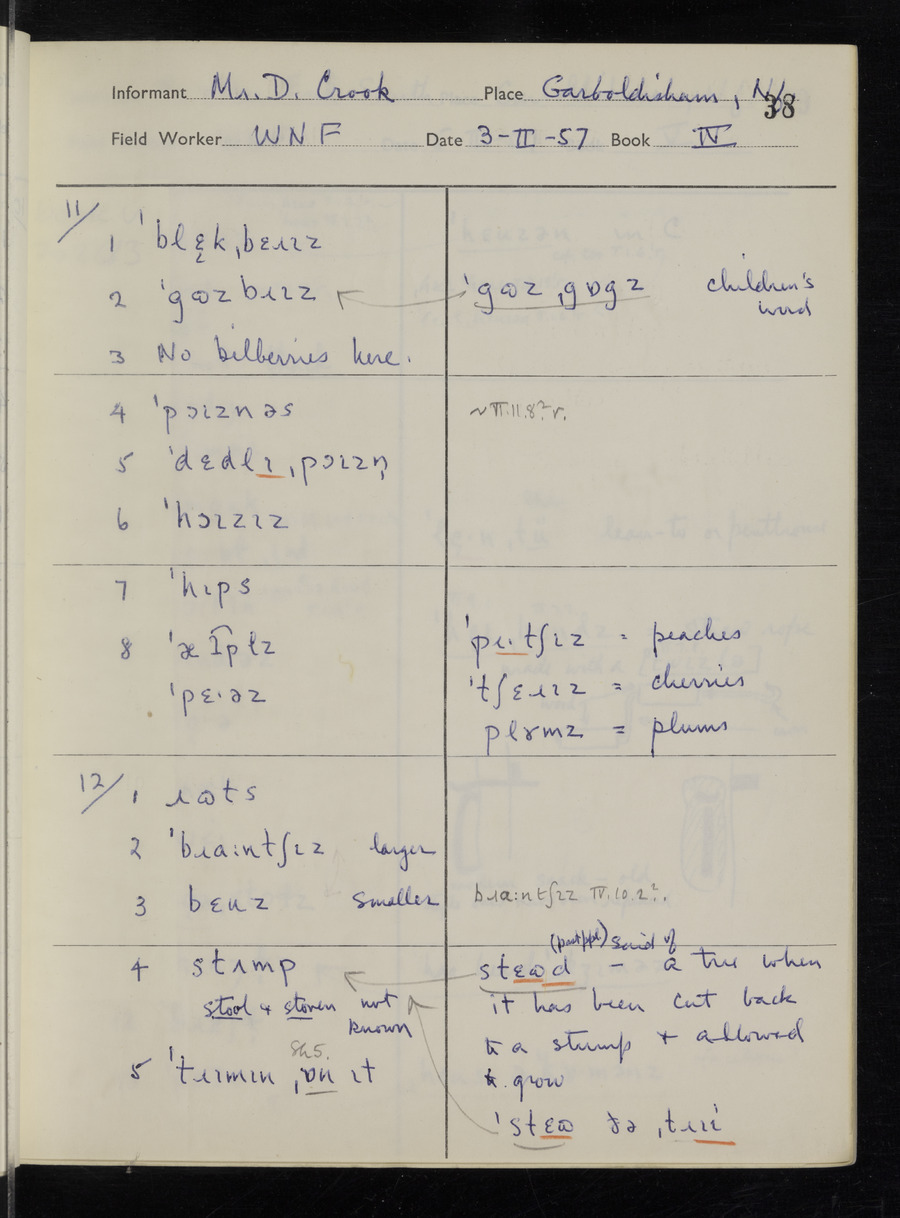 Informant Mr. D. Crook Place Garboldisham, Nf
38
Field Worker WNF Date 3-II-57 Book IV
11/
1 ˈblɛ̞k,bɛɹɪz
2 ˈgɷzbɹɪz ˈgɷz,gɒgz children's
word
3 No bilberries here.
4 ˈpɔɪznəs ~VI.11.8² r.
5 ˈdɛdlɪ,pɔɪzn̩
6 ˈhɔːzɪz
7 ˈhɪps
8 ˈæɪpɫz ˈpɹi·tʃɪz = peaches
ˈpɛ·əz ˈtʃɛɹɪz = cherries
plɤmz = plums
12/
1 ɹɷts
2 ˈbɹaːntʃɪz larger
3 bɛuz smaller bɹaːntʃɪz IV.10.2².
(past ppl) said of
4 stʌmp stɛɷd – a tree when
stool & stoven not it has been cut back
known to a stump & allowed
Sh5. to grow
5 ˈtɹɪmɪn ,ɒn ɪt
ˈstɛɷ ðə ,tɹɪi